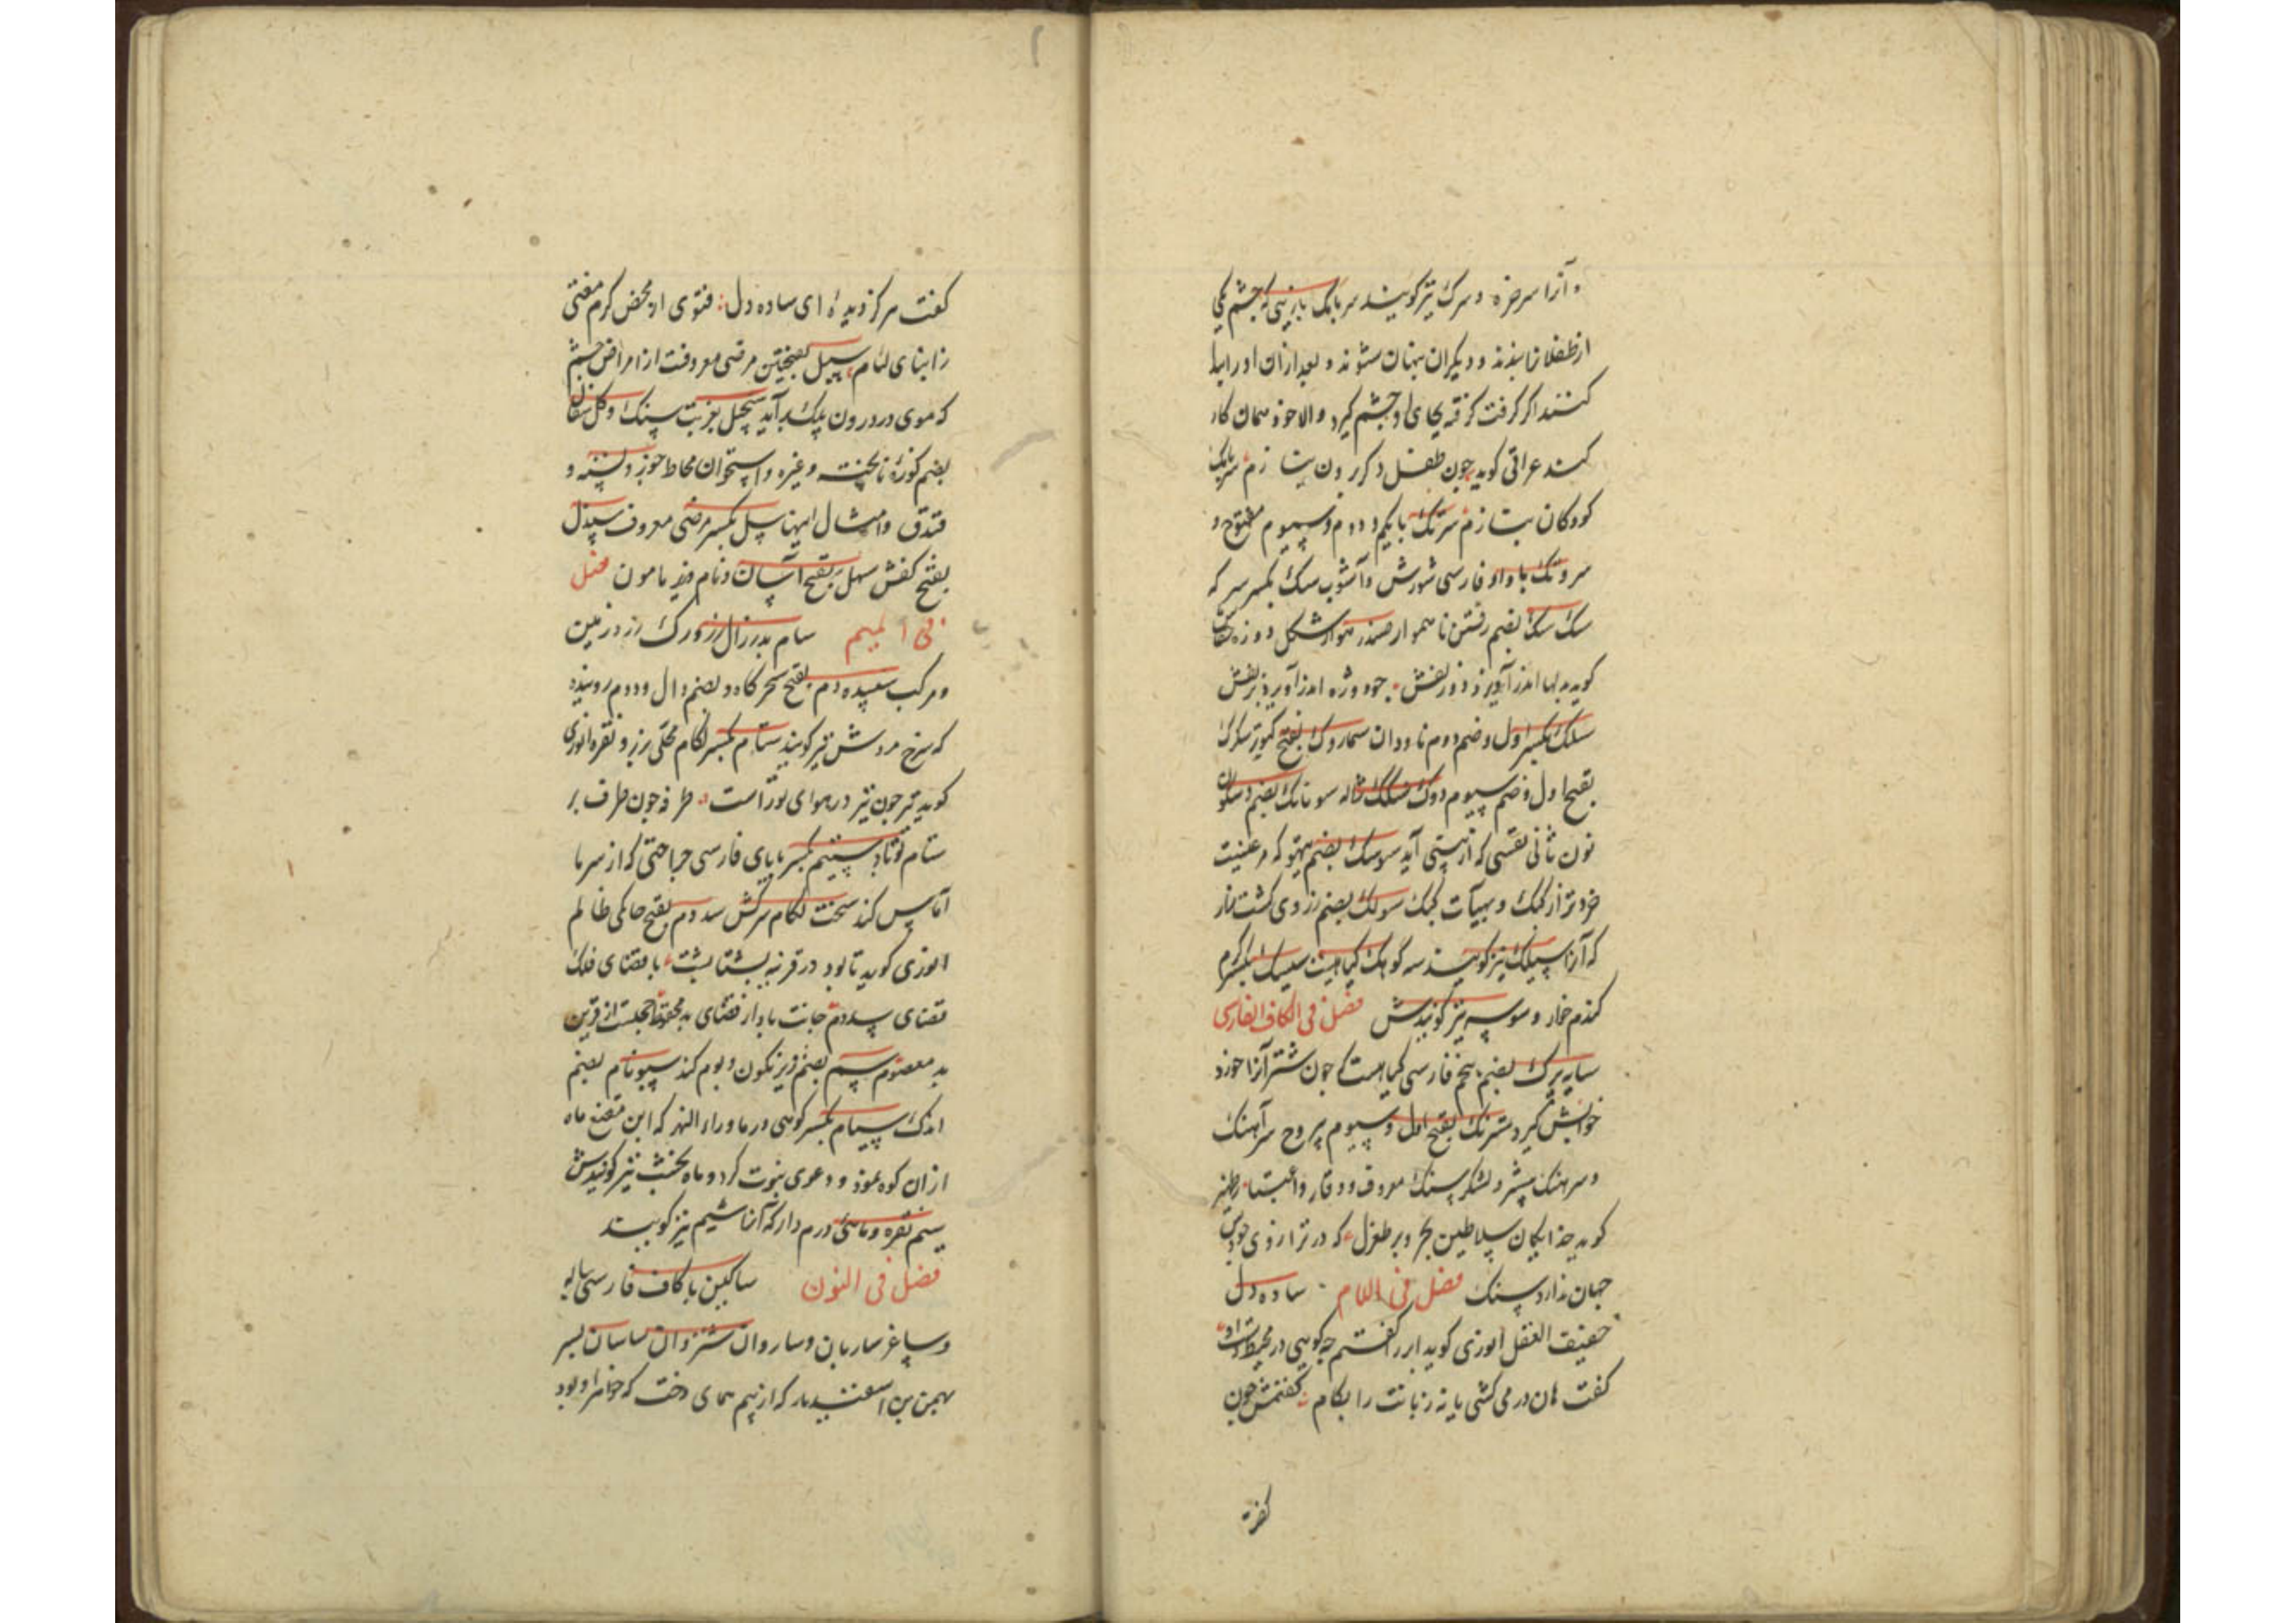 و آنرا سرخزه و سرک نیز گویند سرمامک بازیی که چشم یکی
از طفلان ببندند و دیگران پنهان شوند و بعد از ان او را رها
کنند اگر کرفت کرفته بجای او چشم کیرد والا خود همان کار
کند عراقی کوید چون طفل دکر رون بتا زم سرمامک
کودکان ببتا زم سرتک با یکم و دوم و سیوم مفتوح و
سروتک با واو فارسی شورش و آشوب سک بکسر سرکه
سک سک بضم رفتن ناهموار ضد رهوار شکل دوزه
کوید بدلها اندرآویزد دو زلفش چو دوژه اندرآویزد بزلفش
سلک بکسر اول و ضم دوم ناودان سماروک بفتح کبوتر سکرک
بفتح اول و ضم سیوم دوک سنکک ژاله سونانک بضم و سکون
نون ثانی نفسی که از بینی آید سوسک بضم تیهو که مرغیست
خردتر از کبک و بهیأت کبک سولک بضم زردی کشت زار
که آنرا سپلک نیز کویند سه کوهک کیاهیست سیسک بکسر کرم
کندم خوار و سوسه نیز کویندش فصل فی الکاف الفارسی
سایه برک بضم پنجم فارسی کیاهیست که چون شتر آنرا خورد
خوابش کیرد سترنک بفتح اول و سیوم یبروح سرآهنک
و سرهنک پیشرو لشکر سنک معروف و وقار و اعتبار ظهیر
کوید خدایکان سلاطین بحر و بر طغرل که در ترازوی جودش
جهان ندارد سنک فصل فی اللام ساده دل
خفیف العقل انوری کوید ابر را کفتم چه کویی در محیط دست او
کفت هان در می کشی یا نه زبانت را بکام کفتمش چون
کفت
کفت مرکز دیدهٔ ای ساده دل فتوی از محض کرم مفتی
ز ابنای لئام سبل بفتحتین مرضی معروفست از امراض چشم
که موی در درون پلک برآید سجیل بعربیت سنک و کل سفال
بضم کوزهٔ ناپخته و غیره و استخوان محاط جوز و پسته و
فندق و امثال اینها سل بکسر مرضی معروف سندل
بفتح کفش سهل بفتح آسان و نام وزیر مامون فصل
فی المیم سام پدر زال زر و رک زر در زمین
و مرکب سپیده دم بفتح سحرکاه و بضم دال و دوم رویند
که سرخ مردش نیز کویند ستام بکسر لکام محلی بزر و نقره انوری
کوید تیر چون تیر در هوای تو راست طرفه چون طرف بر
ستام تو باد سپنیم بکسر بابای فارسی جراحتی که از سرما
آماس کند سخت لکام سرکش سدوم بفتح حاکمی ظالم
انوری کوید تا بود در قرینه پشتا پشت با قضای فلک
قضای سدوم جانت باد از قضای بد محفوظ مجلست از قرین
بد معصوم سم بضم و زیر نکون و بوم کند سیونام بضم
اندک سیام بکسر کوهی در ماوراء النهر که ابن مقنع ماه
از ان کوه نمود و دعوی نبوت کرد و ماه نخشب نیز کویندش
سیم نقره و ماهیٔ درم دار که آنرا شیم نیز کویند
فصل فی النون ساکین با کاف فارسی پیاله
و ساغر ساربان و ساروان شتروان ساسان پسر
بهمن بن اسفندیار که از بیم همای دخت که خواهر او بود